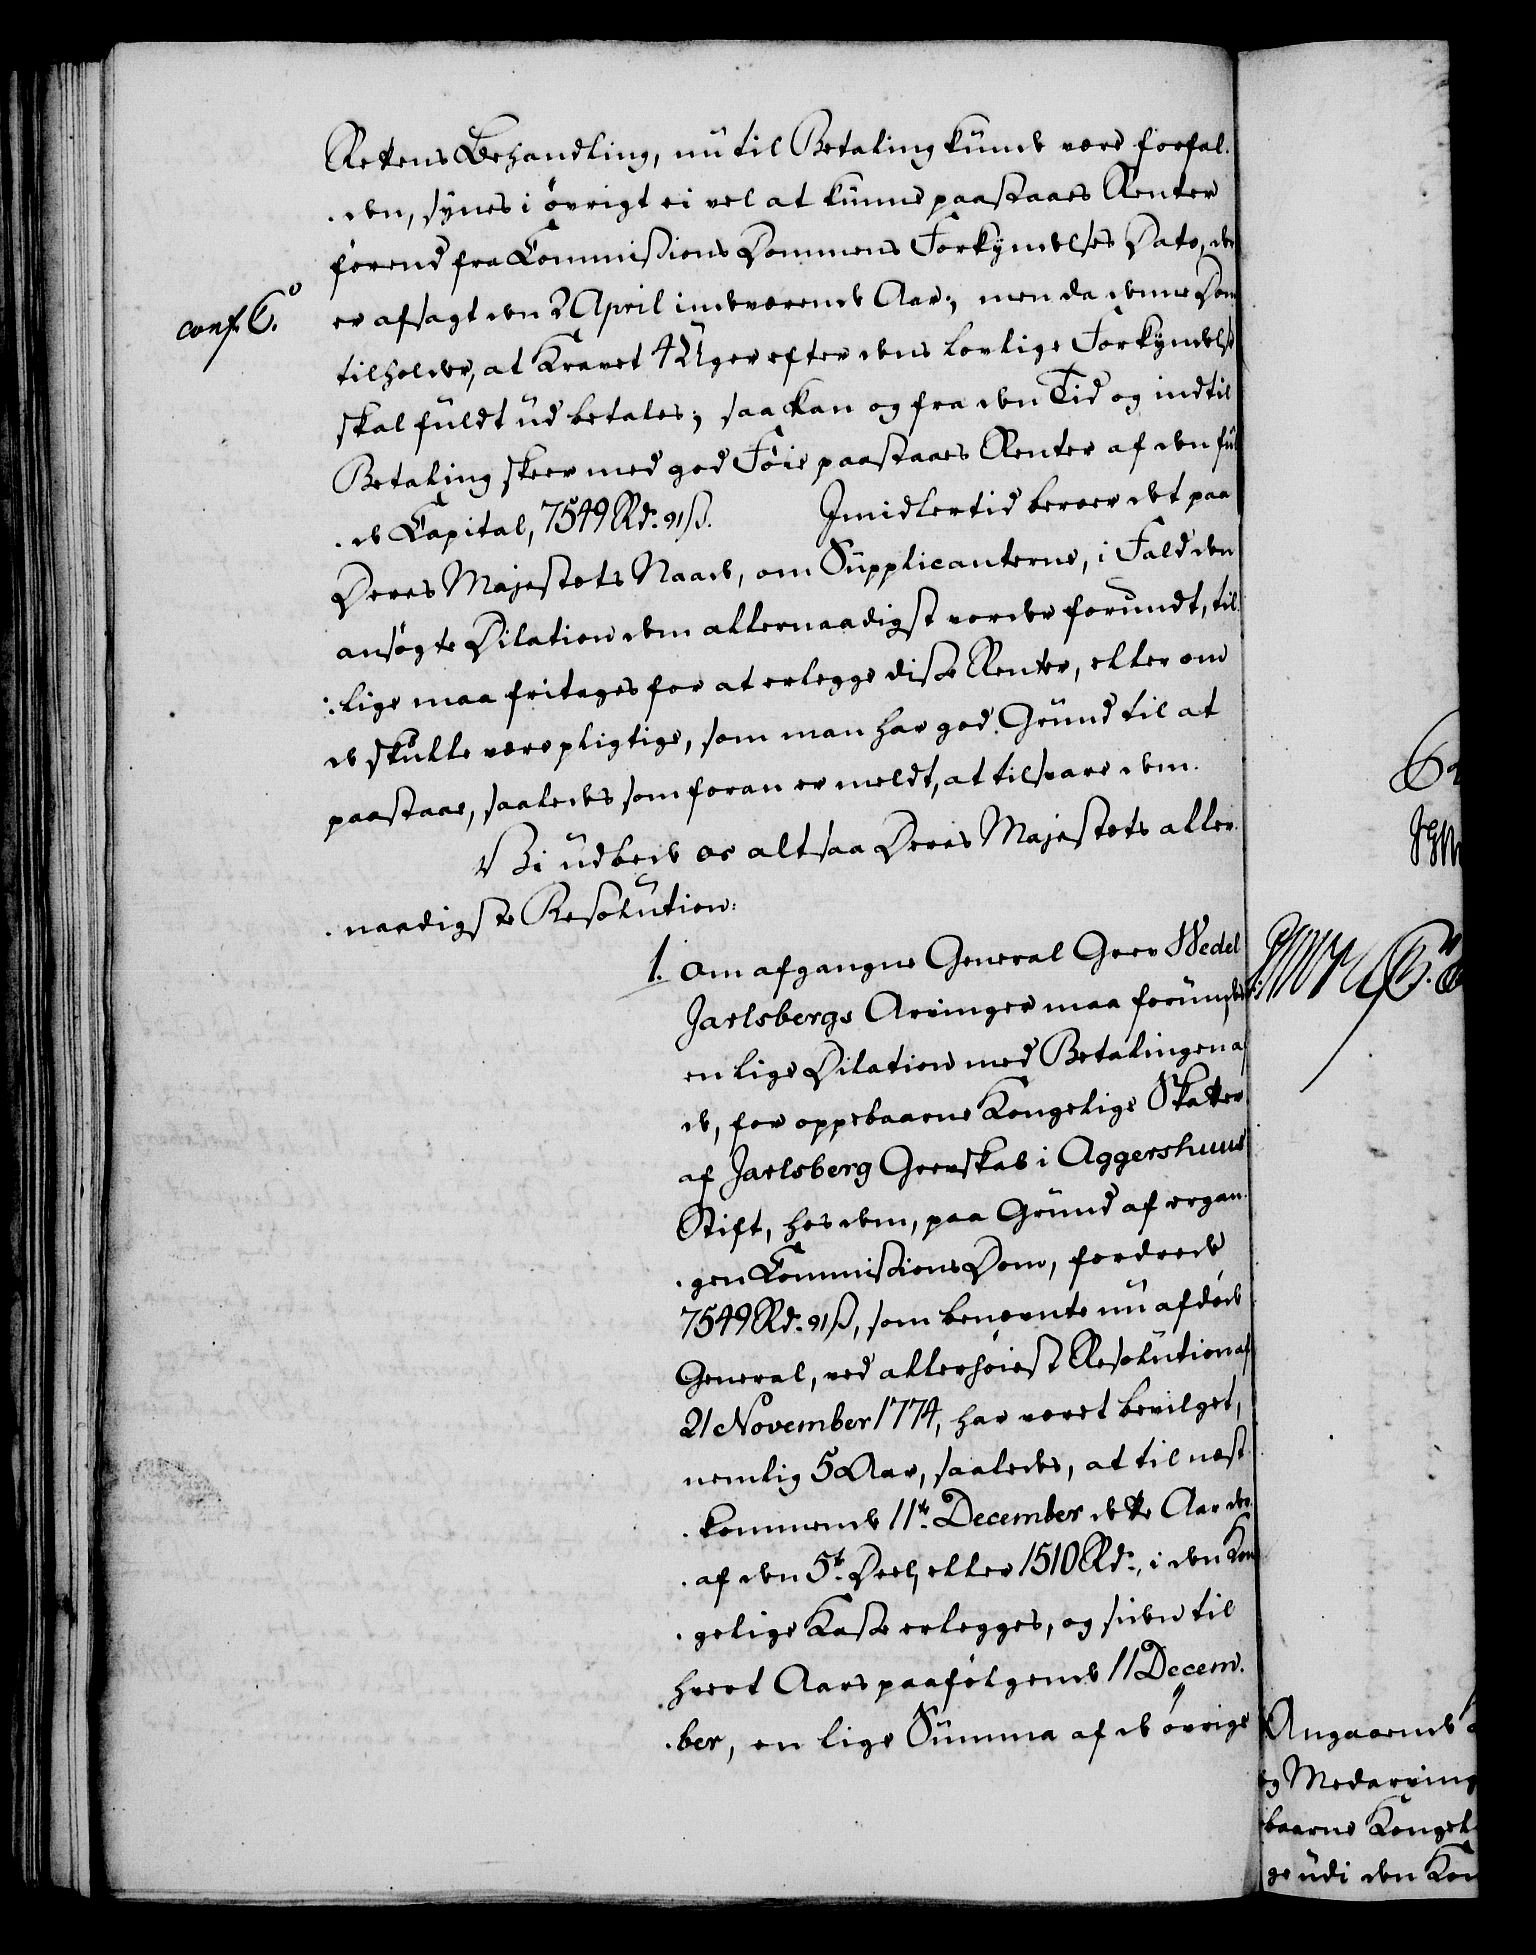 Rettens Behandling, nu til Betaling kunde være forfal-
den, synes i øvrigt ei vel at kunne paastaaes Renter
førend fra Commissions Dommens Forkyndelses Dato, der
conf. 6.°
er afsagt den 2 April indeværende Aar; men da denne Dom
tilholder, at Kravet 4 Uger efter dens lovlige Forkyndelse
skal fuldt ud betales; saa kan og fra den Tid og indtil
Betaling skeer med god Føie paastaaes Renter af den ful-
de Capital, 7549 Rd. 91 ß. Imidlertid beroer det paa
Deres Majestæts Naade, om Supplicanterne, i Fald den
ansøgte Dilation dem allernaadigst vorder forundt, til-
lige maa fritages for at erlegge disse Renter, eller om
de skulle være pligtige, som man har god Grund til at
paastaae, saaledes som foran er meldt, at tilsvare dem.
Vi udbede os altsaa Deres Majestæts aller-
naadigste Resolution:
1. Om afgangne General Grev Wedel
Jarlsbergs Arvinger maa forundes
en lige Dilation med Betalingen af
de, for oppebaarne Kongelige Skatter
af Jarlsberg Grevskab i Aggershuus
Stift, hos dem, paa Grund af ergan-
gen Commissions Dom, fordrede
7549 Rd. 91 ß, som benevnte nu afdøde
General, ved allerhøiest Resolution af
21 November 1774, har været bevilget,
nemlig 5 Aar, saaledes, at til næst-
kommende 11te December dette Aar der-
af den 5te Deel, eller 1510 Rd., i den Kon-
gelige Kasse erlegges, og siden til
hvert Aars paafølgende 11 Decem-
ber, en lige Summa af de øvrige
Angaaende
og Medarving
baarne Kongel
ge udi den Kon